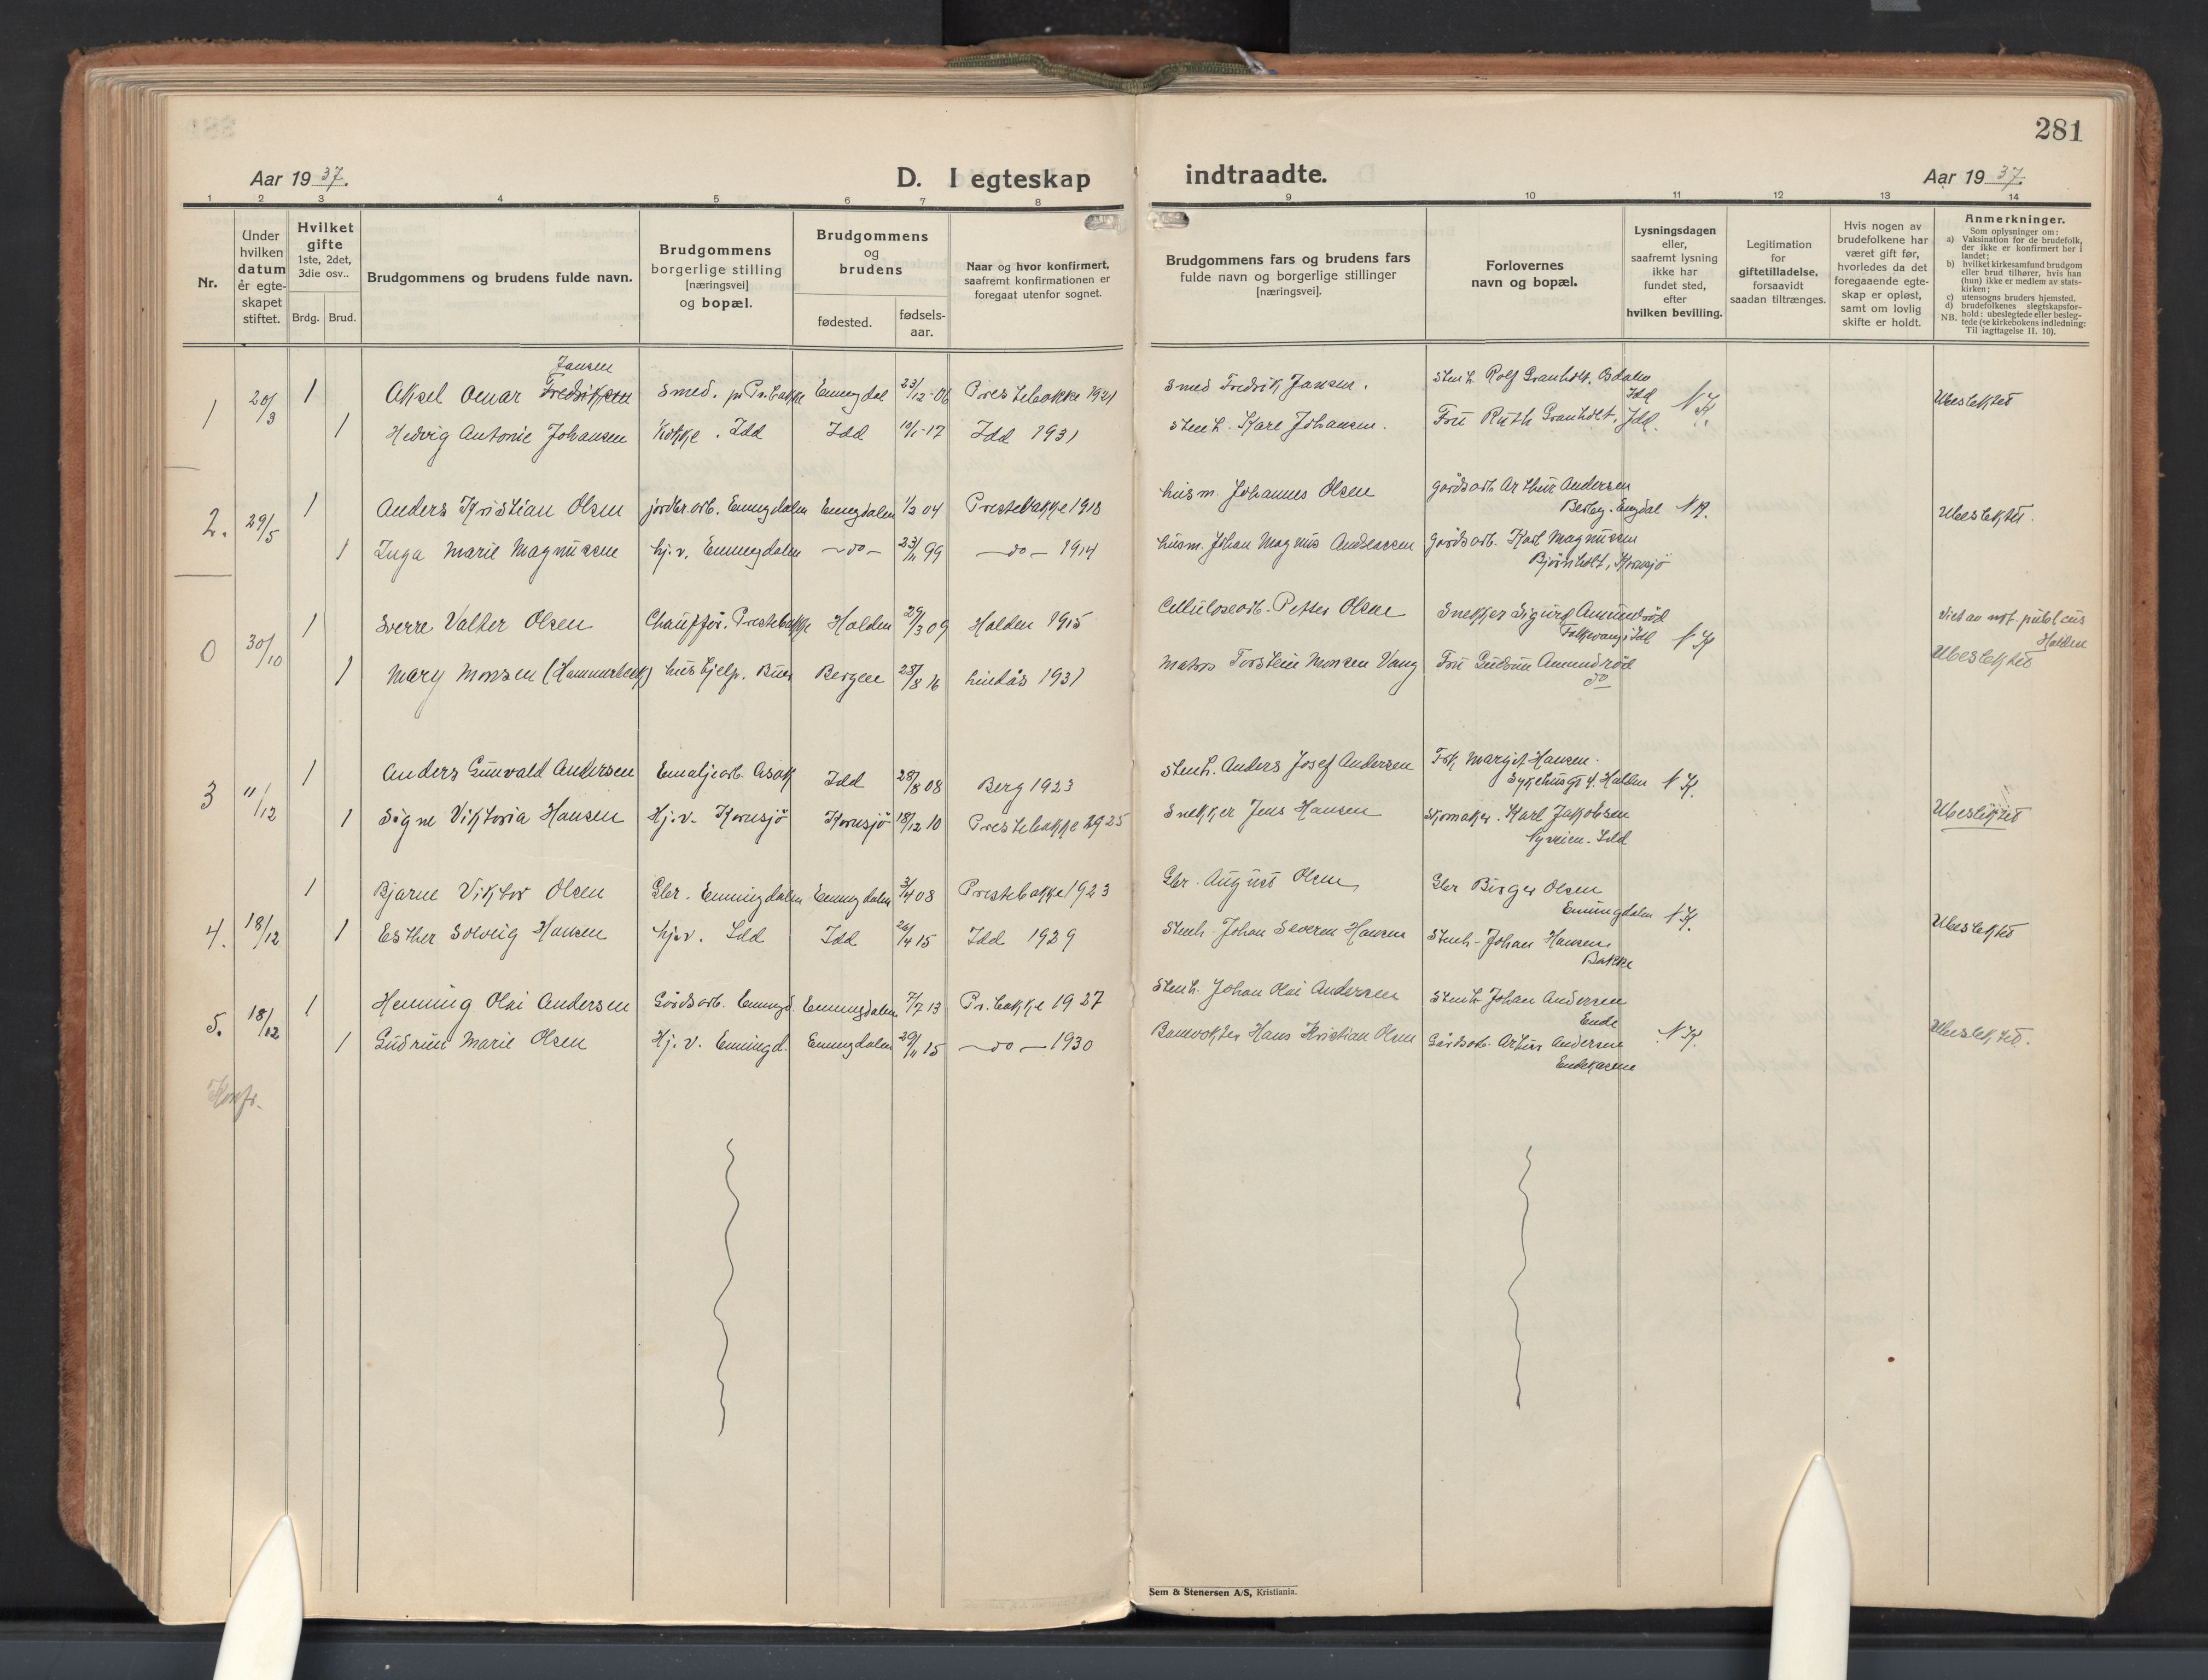 281
Aar 1937.
D. I egteskap indtraadte.
Aar 1937.
1 2 3 4 5 6 7 8 9 10 11 12 13 14
Nr.
Under
hvilken
datum
er egte-
skapet
stiftet.
Hvilket
gifte
1ste, 2det,
3die osv..
Brdg. Brud.
Brudgommens og brudens fulde navn.
Brudgommens
borgerlige stilling
[næringsvei]
og bopæl.
Brudgommens
og
brudens
fødested.
fødsels-
aar.
Naar og hvor konfirmert,
saafremt konfirmationen er
foregaat utenfor sognet.
Brudgommens fars og brudens fars
fulde navn og borgerlige stillinger
[næringsvei].
Forlovernes
navn og bopæl.
Lysningsdagen
eller,
saafremt lysning
ikke har
fundet sted,
efter
hvilken bevilling.
Legitimation
for
giftetilladelse,
forsaavidt
saadan tiltrænges.
Hvis nogen av
brudefolkene har
været gift før,
hvorledes da det
foregaaende egte-
skap er opløst,
samt om lovlig
skifte er holdt.
Anmerkninger.
Som oplysninger om:
a) Vaksination for de brudefolk,
der ikke er konfirmert her i
landet;
b) hvilket kirkesamfund brudgom
eller brud tilhører, hvis han
(hun) ikke er medlem av stats-
kirken;
c) utensogns bruders hjemsted.
d) brudefolkenes slegtskapsfor-
hold: ubeslegtede eller besleg-
NB. tede (se kirkebokens indledning:
Til iagttagelse II. 10).
Jansen
1 20/3 1 Aksel Oenar Fredriksen Smed. pr Pr.bakke Enningdal 23/12-06 Prestebakke 1921 Smed Fredrik Jansen. Stenh. Rolf Granholt. Idd N.K. Ubeslektet
1 Hedvig Antonie Johansen Kokke. Idd Idd 10/1-17 Idd 1931 Stenh. Karl Johansen. Fru Ruth Granholt, Idd.
2. 29/5 1 Anders Kristian Olsen jordbr.arb. Enningdalen Enngdalen 1/2 04 Prestebakke 1918 husm. Johannes Olsen gårdsarb Arthur Andersen
Berby. Engdal N.K. Ubeslektet.
1 Inga Marie Magnussen hj.v. Enningdalen -do- 23/11 99 -do- 1914 husm. Johan Magnus Andreassen gårdsarb. Karl Magnussen
Bjørnholt, Kornsjø
0 30/10 1 Sverre Valter Olsen Chauffør. Prestebakke Halden 29/3 09 Halden 1915 Cellulosearb. Petter Olsen Snekker Sigurd Amundrød
Folkvang i Idd N.K. Viet av not. publicus
Halden
1 Mary Monsen (Hammerbekk) hushjelp. Buer Bergen 25/8 16 Lindås 1931 Matros Torstein Monsen Vang Fru Gudrun Amundrød Ubeslektet
do
3 11/12 1 Anders Gunvald Andersen Emaljearb. Asak Idd 28/8 08 Berg 1923 Stenh. Anders Josef Andersen Frk Margit Hansen.
Sykehusgt 4. Halden N.K.
1 Signe Viktoria Hansen Hj.v. Kornsjø Kornsjø 18/12 10 Prestebakke 2925 Snekker Jens Hansen Skomaker. Karl Jakobsen Ubeslektet
Nyveien. Idd
4. 18/12 1 Bjarne Viktor Olsen Gbr. Enningdalen Enningdalen 3/4 08 Prestebakke 1923 Gbr. August Olsen Gbr Birger Olsen
Enningdalen N.K. Ubeslektet
1 Esther Solveig Hansen hj.v. Idd Idd 26/4 15 Idd 1929 Stenh. Johan Severin Hansen Stenh. Johan Hansen
Bakke
5. 18/12 1 Henning Olai Andersen Gårdsarb. Enningd. Enningdalen 7/7 13 Pr.bakke 1927 Stenh. Johan Olai Andersen Stenh Johan Andersen
Ende N.K. Ubeslektet.
1 Gudrun Marie Olsen Hj.v. Enningd. Enningdalen 29/11 15 -do- 1930 Banevokter Hans Kristian Olsen Gårdsarb. Artur Andersen
Endekasene
Konfr.
Sem & Stenersen A/S, Kristiania.